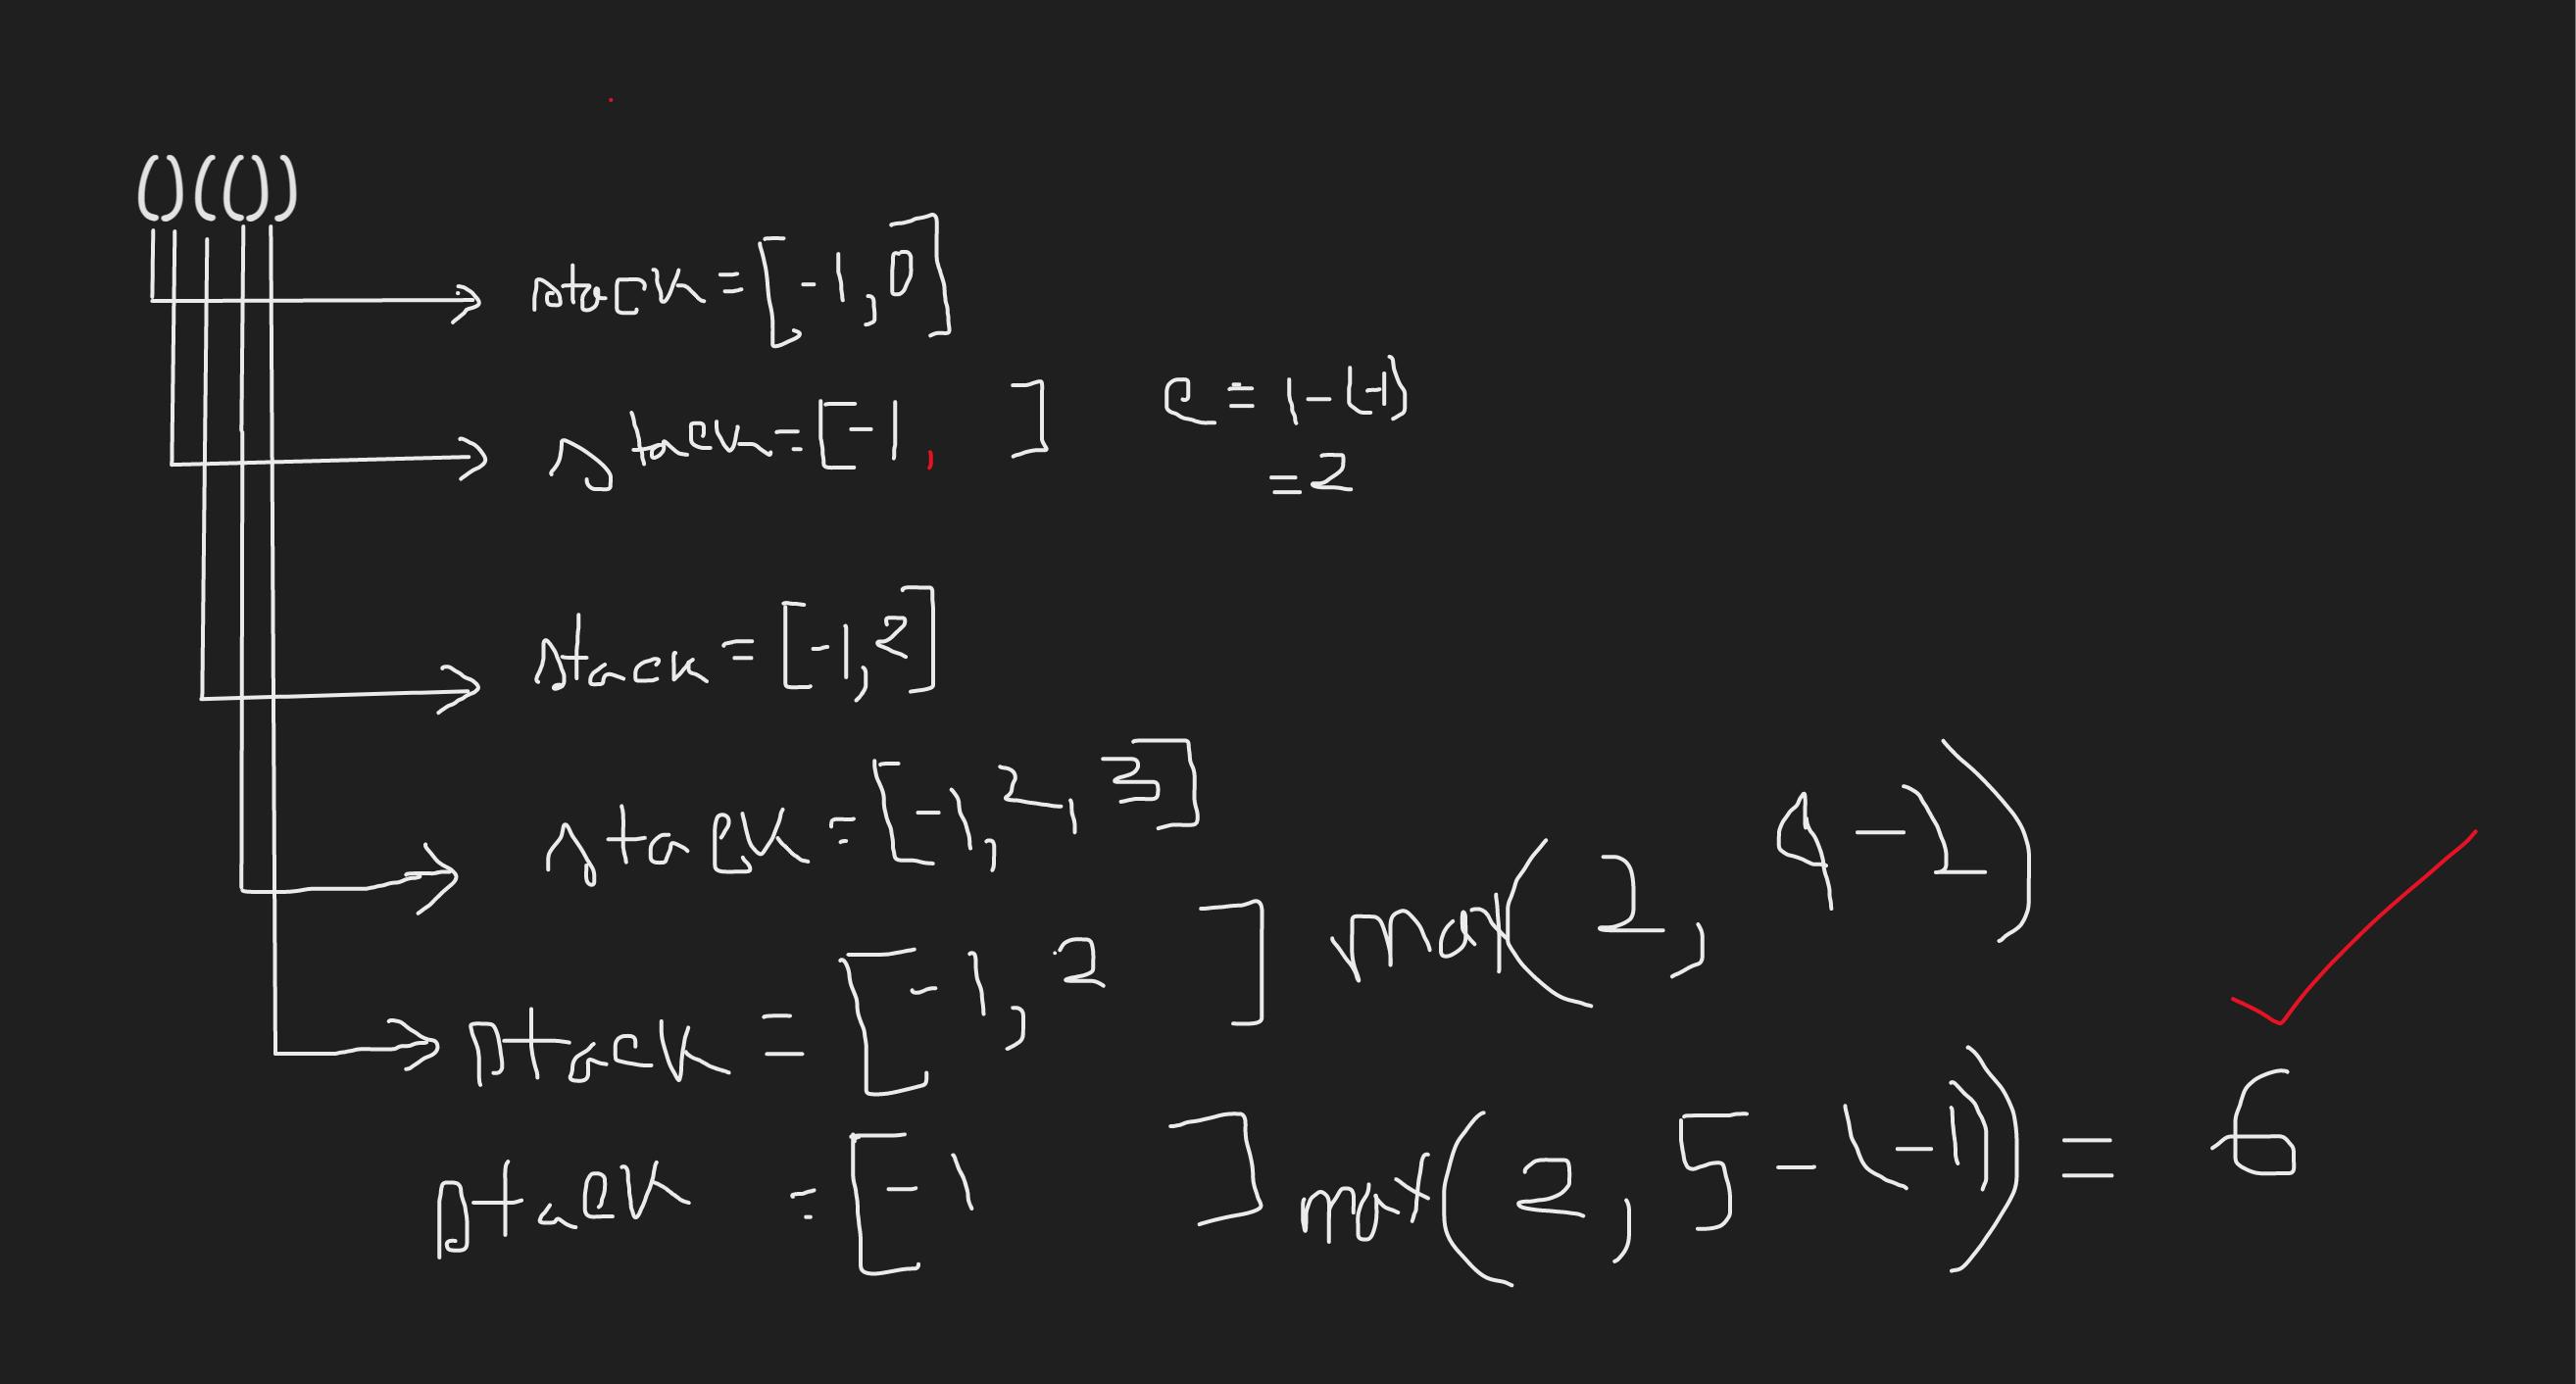 ()(())
stack = [-1, 0]
stack = [-1, ] e = 1-(-1)
= 2
stack = [-1, 2]
stack = [-1, 2, 3]
stack = [-1, 2 ] max(2, 4-2)
stack = [-1 ] max(2, 5-(-1)) = 6